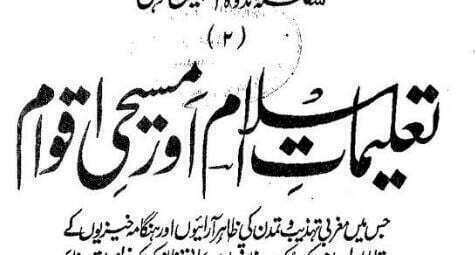 سلسلہ ندوۃ المصنفین دہلی
(۲)
تعلیماتِ اسلام اور مسیحی اقوام
جس میں مغربی تہذیب و تمدن کی ظاہر آرائیوں اور ہنگامہ خیزیوں کے